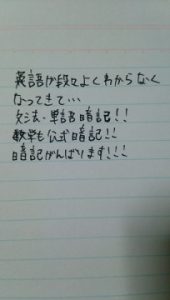 英語が段々よくわからなく
なってきて…
文法・単語暗記!!
数学も公式暗記!!
暗記がんばります!!!